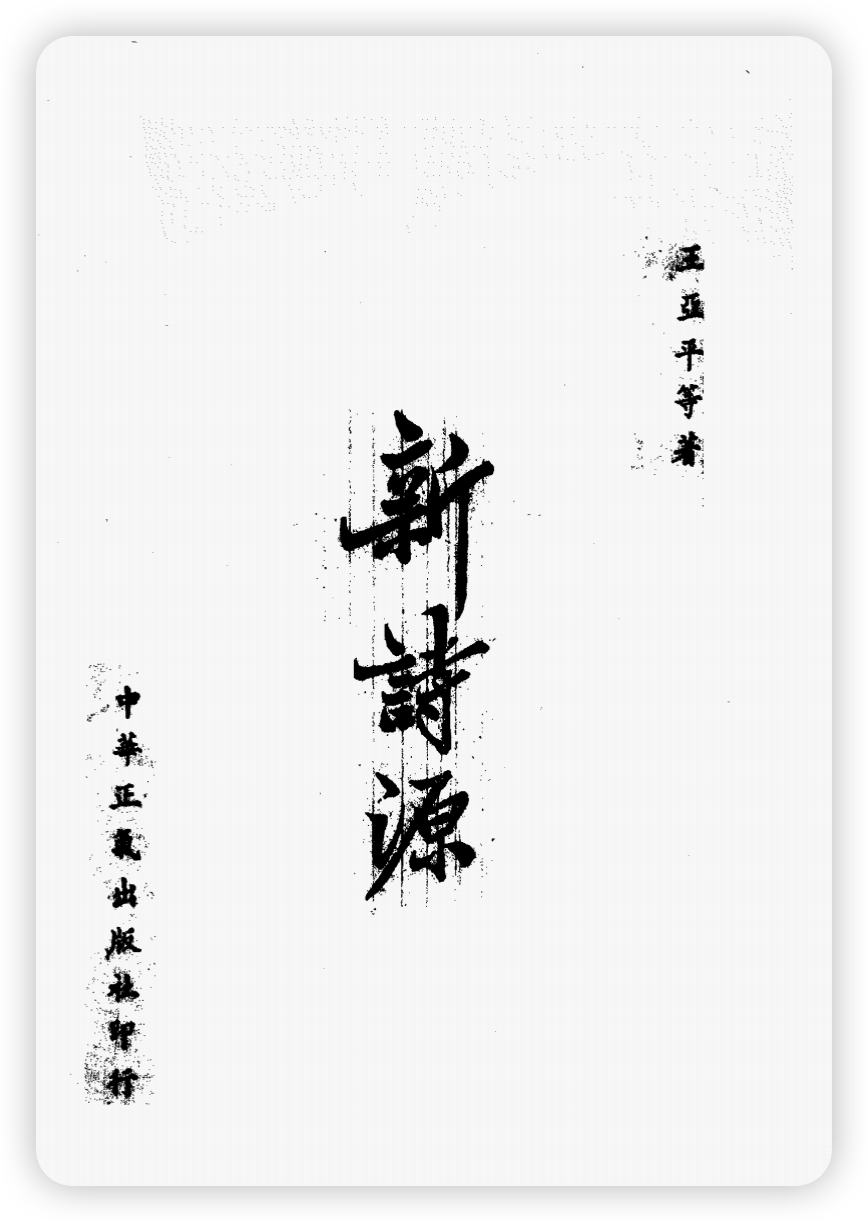 王亞平等著
新詩源
中華正氣出版社印行